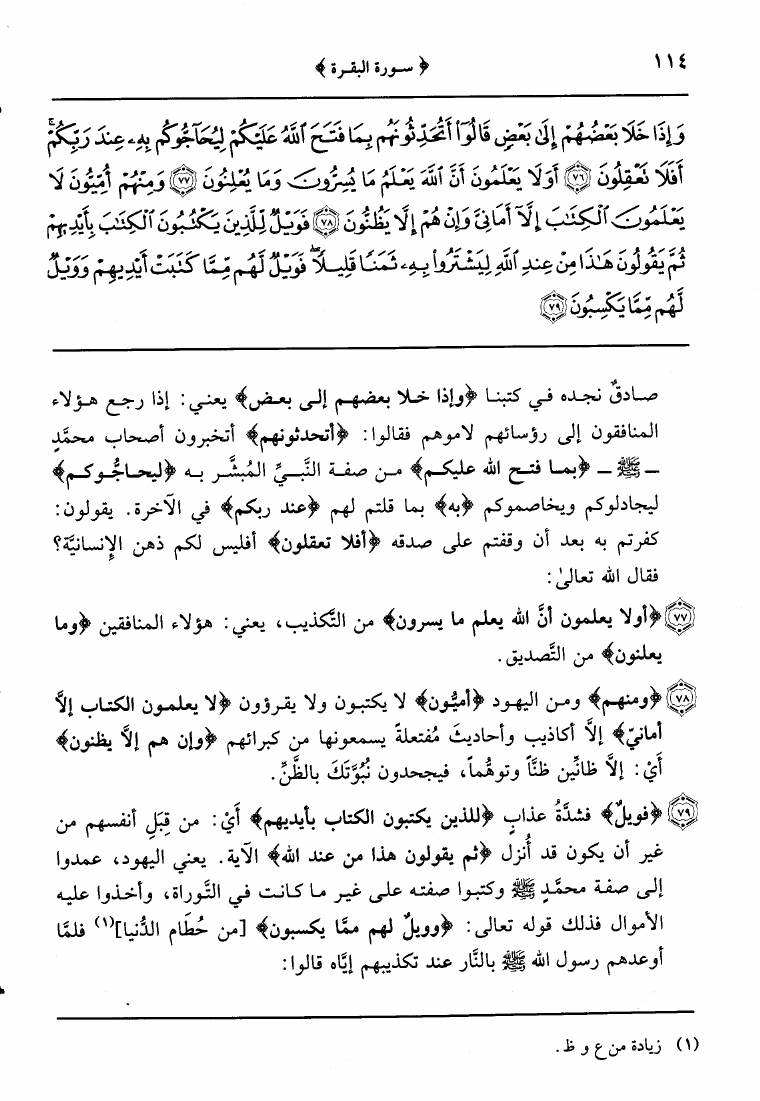 ١١٤
﴿ سورة البقرة ﴾
وَإِذَا خَلَا بَعْضُهُمْ إِلَىٰ بَعْضٍ قَالُوٓا۟ أَتُحَدِّثُونَهُم بِمَا فَتَحَ ٱللَّهُ عَلَيْكُمْ لِيُحَآجُّوكُم بِهِۦ عِندَ رَبِّكُمْ ۚ
أَفَلَا تَعْقِلُونَ ﴿٧٦﴾ أَوَلَا يَعْلَمُونَ أَنَّ ٱللَّهَ يَعْلَمُ مَا يُسِرُّونَ وَمَا يُعْلِنُونَ ﴿٧٧﴾ وَمِنْهُمْ أُمِّيُّونَ لَا
يَعْلَمُونَ ٱلْكِتَٰبَ إِلَّآ أَمَانِىَّ وَإِنْ هُمْ إِلَّا يَظُنُّونَ ﴿٧٨﴾ فَوَيْلٌ لِّلَّذِينَ يَكْتُبُونَ ٱلْكِتَٰبَ بِأَيْدِيهِمْ
ثُمَّ يَقُولُونَ هَٰذَا مِنْ عِندِ ٱللَّهِ لِيَشْتَرُوا۟ بِهِۦ ثَمَنًا قَلِيلًا ۖ فَوَيْلٌ لَّهُم مِّمَّا كَتَبَتْ أَيْدِيهِمْ وَوَيْلٌ
لَّهُم مِّمَّا يَكْسِبُونَ ﴿٧٩﴾
صادقٌ نجده في كتبنا ﴿وإذا خلا بعضهم إلى بعض﴾ يعني: إذا رجع هؤلاء
المنافقون إلى رؤسائهم لاموهم فقالوا: ﴿أتحدثونهم﴾ أتخبرون أصحاب محمَّدٍ
ـ ﷺ ـ ﴿بما فتح الله عليكم﴾ من صفة النَّبيِّ المُبشَّر به ﴿ليحاجُّوكم﴾
ليجادلوكم ويخاصموكم ﴿به﴾ بما قلتم لهم ﴿عند ربكم﴾ في الآخرة. يقولون:
كفرتم به بعد أن وقفتم على صدقه ﴿أفلا تعقلون﴾ أفليس لكم ذهن الإنسانيَّة؟
فقال الله تعالىٰ:
﴿٧٧﴾ ﴿أولا يعلمون أنَّ الله يعلم ما يسرون﴾ من التَّكذيب، يعني: هؤلاء المنافقين ﴿وما
يعلنون﴾ من التَّصديق.
﴿٧٨﴾ ﴿ومنهم﴾ ومن اليهود ﴿أميُّون﴾ لا يكتبون ولا يقرؤون ﴿لا يعلمون الكتاب إلاَّ
أمانيّ﴾ إلاَّ أكاذيب وأحاديثَ مُفتعلةً يسمعونها من كبرائهم ﴿وإن هم إلاَّ يظنون﴾
أَيْ: إلاَّ ظانِّين ظنَّاً وتوهُّماً، فيجحدون نُبُوَّتَكَ بالظَّنِّ.
﴿٧٩﴾ ﴿فويلٌ﴾ فشدَّةُ عذابٍ ﴿للذين يكتبون الكتاب بأيديهم﴾ أَيْ: من قِبَلِ أنفسهم من
غير أن يكون قد أُنزل ﴿ثم يقولون هذا من عند الله﴾ الآية. يعني اليهود، عمدوا
إلى صفة محمَّدٍ ﷺ وكتبوا صفته على غير ما كانت في التَّوراة، وأخذوا عليه
الأموال فذلك قوله تعالى: ﴿وويلٌ لهم ممَّا يكسبون﴾ [من حُطَام الدُّنيا](١) فلمَّا
أوعدهم رسول الله ﷺ بالنَّار عند تكذيبهم إيَّاه قالوا:
(١) زيادة من ع و ظ.